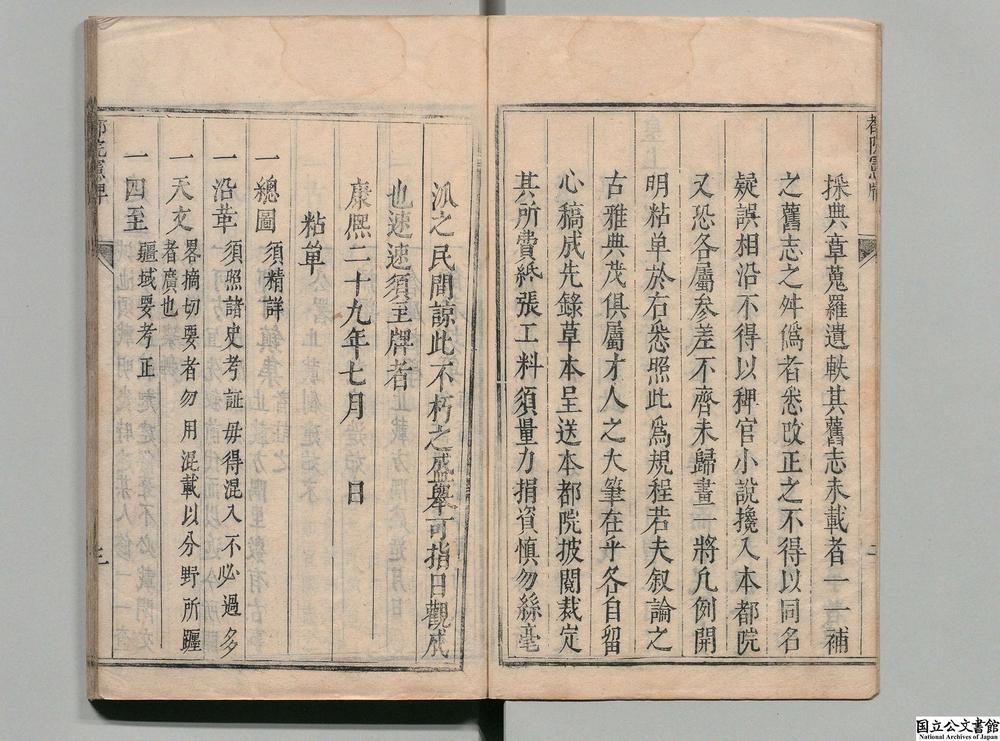 採典草蒐羅遺軼其舊志未載者一一補
之舊志之舛僞者悉改正之不得以同名
疑誤相沿不得以稗官小說攙入本都院
又恐各屬參差不齊未歸畫一將凡例開
明粘单於右悉照此爲規程若夫叙論之
古雅典茂俱屬才人之大筆在乎各自留
心稿成先錄草本呈送本都院披閱裁定
其所費紙張工料須量力捐資慎勿絲毫
派之民間諒此不朽之盛舉可指日觀成
也速速須至牌者
康熙二十九年七月　日
粘单
一總圖　須精詳
一沿革　須照諸史考証毋得混入不必過多
一天文　畧摘切要者勿用混載以分野所躔
者廣也
一四至　疆域要考正
都院憲牌
二
都院憲牌
三
国立公文書館
National Archives of Japan